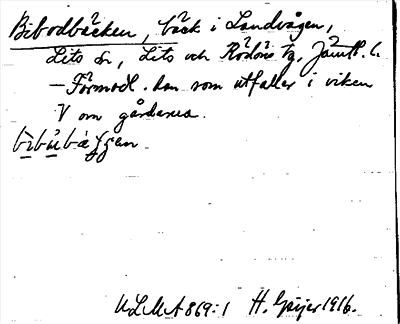 Bibodbäcken, bäck i Landvågen,
Lits sn, Lits och Rödöns tg, Jämtl. l.
– Förmodl. den som utfaller i viken
V om gårdarna.
bìbùbäggen
ULMA 869:1 H. Geijer 1916.